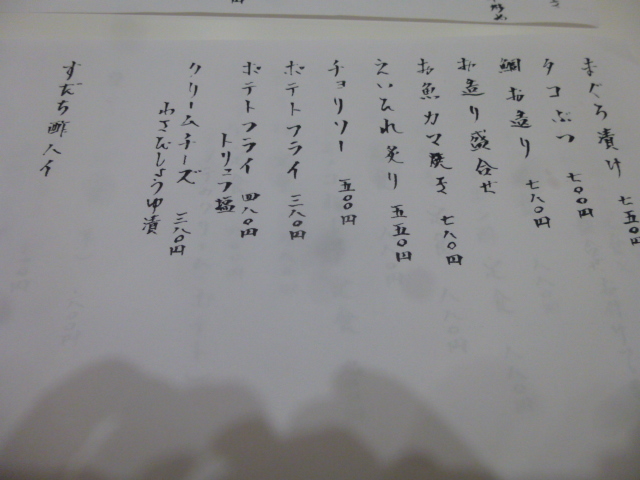 まぐろ漬け 七五〇円
タコぶつ 七〇〇円
鯛お造り 七八〇円
お造り盛合せ
お魚カマ焼き 七八〇円
えいひれ炙り 五五〇円
チョリソー 五〇〇円
ポテトフライ 三八〇円
ポテトフライ 四八〇円
トリュフ塩
クリームチーズ 三八〇円
わさびしょうゆ漬
すだち酢ハイ